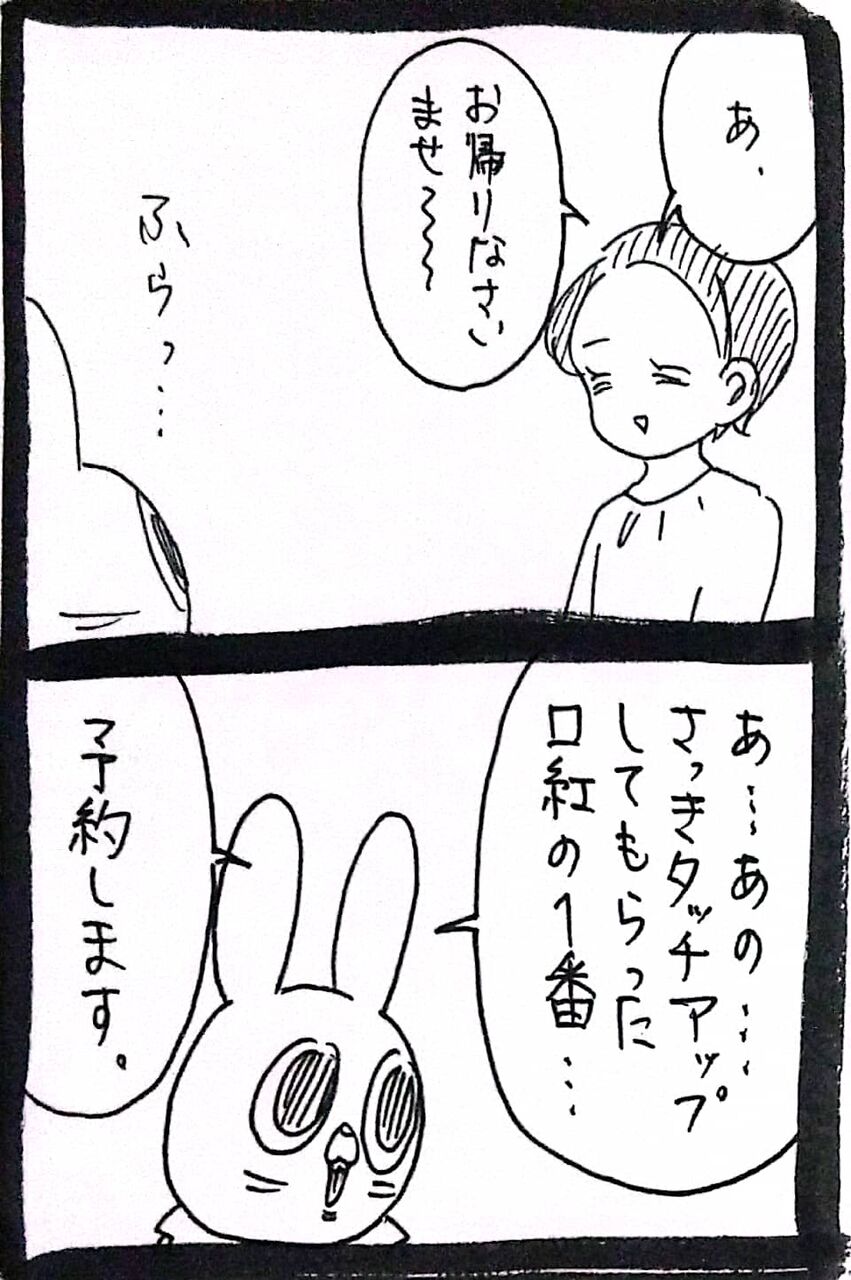 あ、
お帰りなさい
ませ〜〜〜
ふらっ…
あ…あの…
さっきタッチアップ
してもらった
口紅の1番…
予約します。